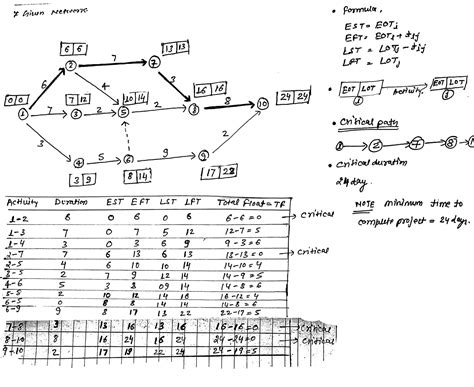 * Given Network
6 6
13 13
2
7
7
6
4
3
0 0
7 12
10 14
16 16
24 24
1
7
3
2
5
2
8
8
10
3
2
4
5
6
9
9
3 9
8 14
17 22
• Formula,
EST = EOTi
EFT = EOTi + tij
LST = LOTj - tij
LFT = LOTj
• EOT LOT
EOT LOT
Activity
i
j
• Critical path
1 2 7 8
• Critical duration
24 day.
NOTE minimum time to
complete project = 24 days.
Activity Duration EST EFT LST LFT Total Float = TF
1-2 6 0 6 0 6 6-6=0 → Critical
1-3 7 0 7 5 12 12-7=5
1-4 3 0 3 6 9 9-3=6
2-7 7 6 13 6 13 13-13=0 → Critical
2-5 4 6 10 10 14 14-10=4
3-5 2 7 9 12 14 14-9=5
4-6 5 3 8 09 14 14-8=6
2 10 12 14 16 16-12=4
0 8 8 14 14 14-8=6
6-9 9 8 17 13 22 22-17=5
7-8 3 13 16 13 16 16-16=0 Critical
8-10 8 16 24 16 24 24-24=0 Critical
9-10 2 17 19 22 24 24-19=5